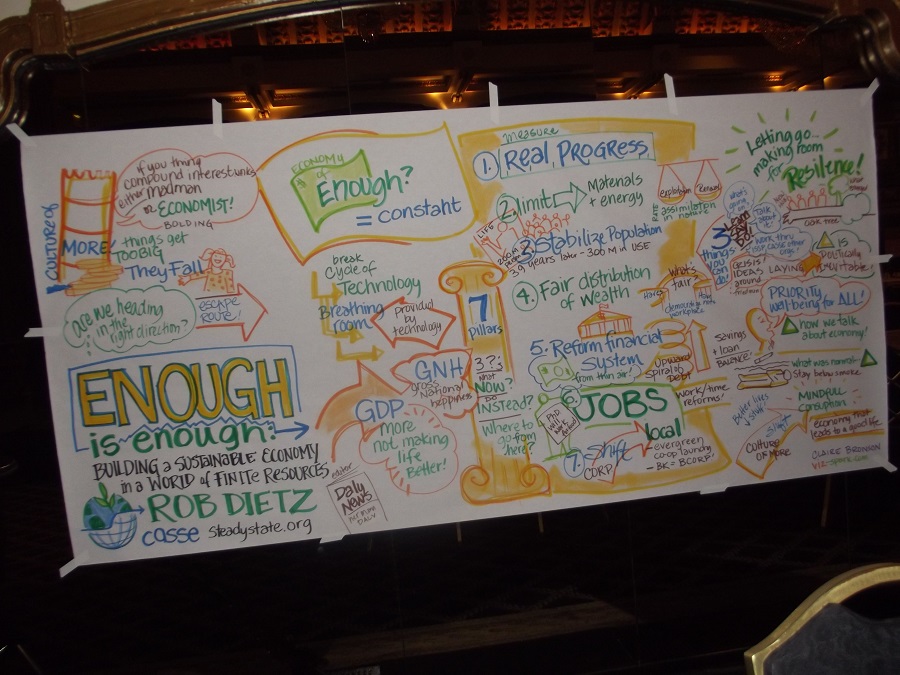 CULTURE of
MORE!
if you thing
compound interest wks
either madman
or ECONOMIST!
BOLDING
things get
TOO BIG
They Fall
are we heading
in the
right direction?
ESCAPE
ROUTE!
ENOUGH
is enough:
BUILDING a SUSTAINABLE ECONOMY
in a WORLD of FINITE RESOURCES
ROB DIETZ
casse steadystate.org
ECONOMY
of
Enough?
= constant
break
Cycle of
Technology
Breathing
room
provided
by
technology
GNH
gross
National
happiness
GDP
more
not making
life
Better!
editor
Daly
News
DALY
7
Pillars
3 ?'s
what
Now?
DO
INSTEAD?
Where to
go from
here?
measure
1. Real PROGRESS
2. limit
Materials
+ energy
LIFE
3. Stabilize Population
3.9 years later - 300 M in USE
4. Fair distribution
of Wealth
5. Reform financial
System
from thin air!
6. JOBS
PhD will
work
7. Shift
CORP
local
- evergreen
co-op laundry
- BK = BCORP!
RATE
assimilation
in nature
What's
fair
democratic
workplace
Upward
spiral of
Debt
savings
+ loan
BALANCE!
work/time
reforms!
Letting go...
making room
for
Resilience!
OUR TREE
3
things
you
can do!
what's
going on
Talk
about
it
work thru
issues
other
orgs!
IDEAS LAYING
around
IS
Politically
PRIORITY
well being for ALL!
how we talk
about economy!
what was normal
Stay below
MINDFUL
Consumption
economy that
leads to a good life
Better lives
stuff!
CULTURE
OF MORE
CLAIRE BRONSON